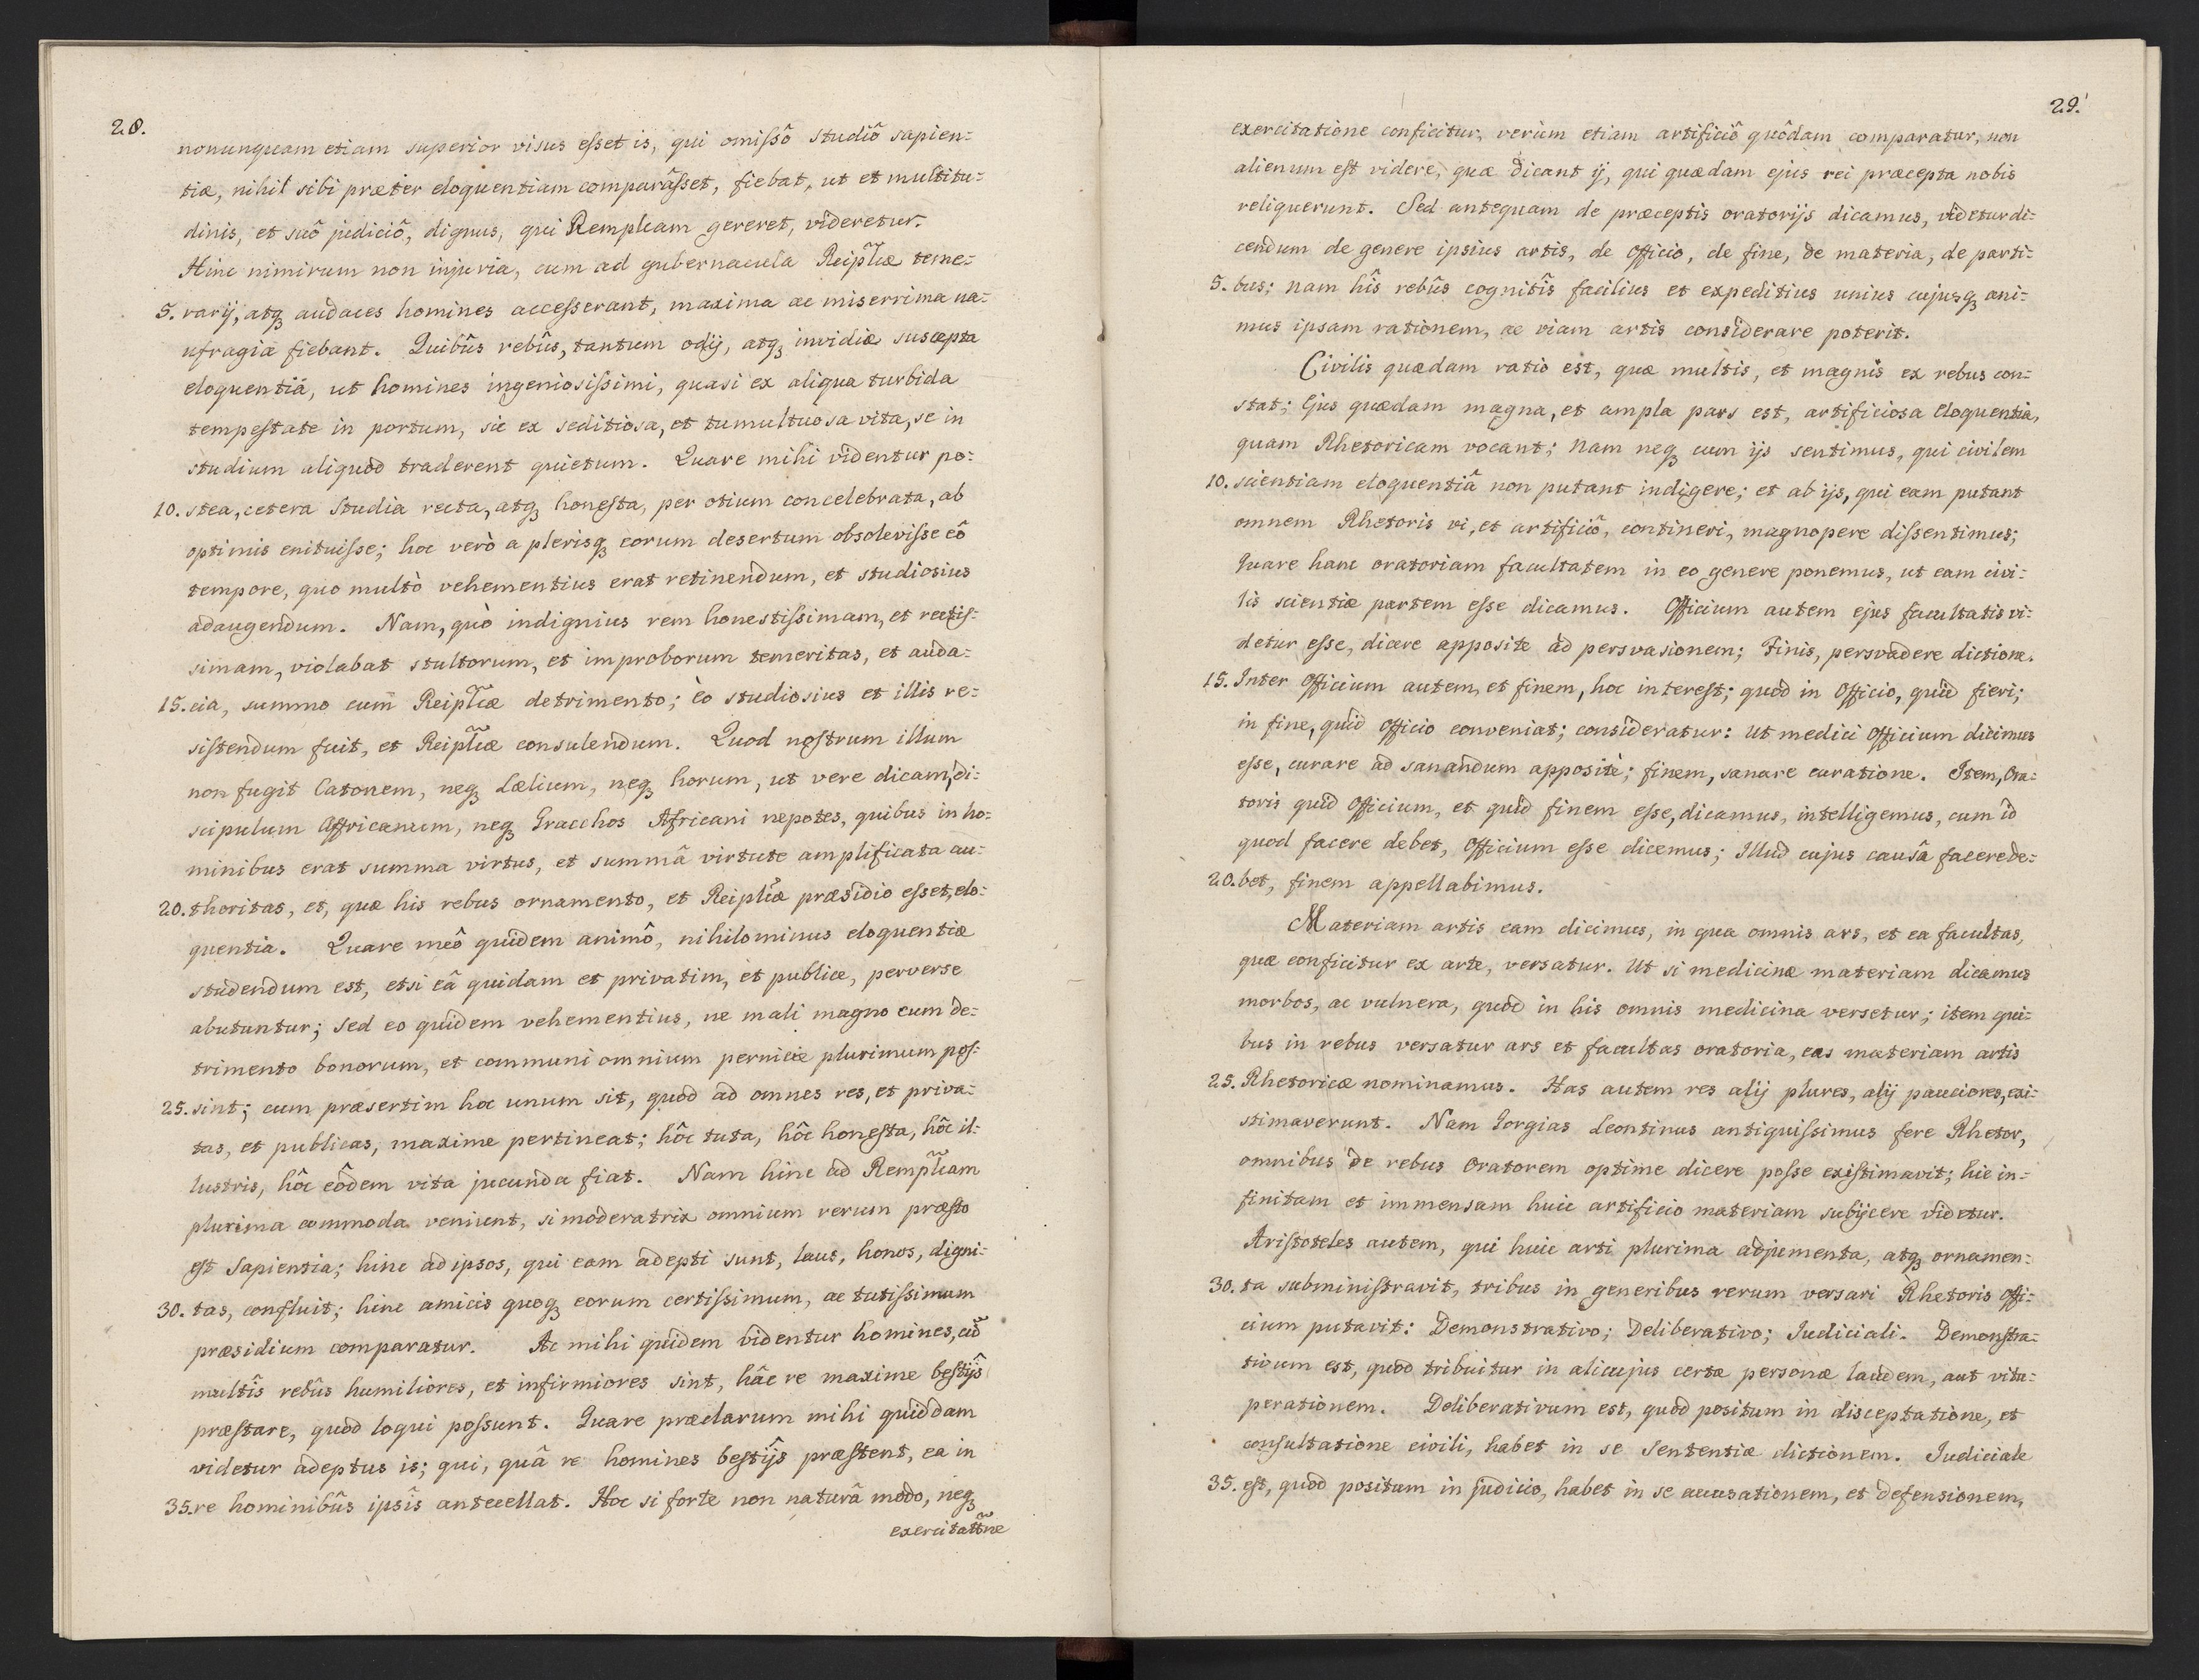 28.
nonunquam etiam superior visus esset is, qui omissô studiô sapien=
tiæ, nihil sibi præter eloquentiam comparâsset, fiebat, ut et multitu=
dinis, et suô judiciô, dignus, qui Remplcam gereret, videretur.
Hinc nimirum non injuria, cum ad gubernacula Reiplcæ teme=
5. rarij, atq, audaces homines accesserant, maxima ac miserrima na=
ufragia fiebant. Quibûs rebûs, tantum odij, atq, invidiæ suscepta
eloquentiâ, ut homines ingeniosissimi, quasi ex aliqua turbida
tempestate in portum, sic ex seditiosa, et tumultuosa vita, se in
studium aliquod traderent quietum. Quare mihi videntur po=
10. stea, cetera studia recta, atq, honesta, per otium concelebrata, ab
optimis enituisse; hoc verò a plerisq, eorum desertum obsolevisse eô
tempore, quo multò vehementius erat retinendum, et studiosius
adaugendum. Nam, quò indignius rem honestissimam, et rectis=
simam, violabat stultorum, et improborum temeritas, et auda=
15. cia, summo cum Reiplcæ detrimento; eò studiosius et illis re=
sistendum fuit, et Reiplcæ consulendum. Quod nostrum illum
non fugit Catonem, neq, Lælium, neq, horum, ut vere dicam, di=
scipulum Affricanum, neq, Gracchos Africani nepotes, quibus in ho=
minibus erat summa virtus, et summâ virtute amplificata au=
20. thoritas, et, quæ his rebus ornamento, et Reiplcæ præsidio esset, elo=
quentia. Quare meô quidem animô, nihilominus eloquentiæ
studendum est, etsi eâ quidam et privatim, et publice, perverse
abutuntur; sed eo quidem vehementius, ne mali magno cum de=
trimento bonorum, et communi omnium pernicie plurimum pos=
25. sint; cum præsertim hoc unum sit, quod ad omnes res, et priva=
tas, et publicas, maxime pertineat; hôc tuta, hôc honesta, hôc il=
lustris, hôc eôdem vita jucunda fiat. Nam hinc ad Remplcam
plurima commoda veniunt, si moderatrix omnium rerum præsto
est Sapientia; hinc ad ipsos, qui eam adepti sunt, laus, honos, digni=
30. tas, confluit; hinc amicis quoq, eorum certissimum, ac tutissimum
præsidium comparatur. Ac mihi quidem videntur homines, cũ
multîs rebûs humiliores, et infirmiores sint, hâc re maxime bestijs
præstare, quod loqui possunt. Quare præclarum mihi quiddam
videtur adeptus is; qui, quâ re homines bestijs præstent, ea in
35. re hominibûs ipsîs antecellat. Hoc si forte non naturâ modo, neq,
exercitatt̃ne
29.
exercitatione conficitur, verùm etiam artificiô quôdam comparatur, non
alienum est videre, quæ dicant ij, qui quædam ejus rei præcepta nobis
reliquerunt. Sed antequam de præceptis oratorijs dicamus, videtur di=
cendum de genere ipsius artis, de Officio, de fine, de materia, de parti=
5. bus; nam hîs rebûs cognitîs facilius et expeditius unius cujusq, ani=
mus ipsam rationem, ac viam artis considerare poterit.
Civilis quædam ratio est, quæ multis, et magnis ex rebus con=
stat; Ejus quædam magna, et ampla pars est, artificiosa Eloquentia,
quam Rhetoricam vocant; Nam neq, cum ijs sentimus, qui civilem
10. scientiam eloquentiâ non putant indigere; et ab ijs, qui eam putant
omnem Rhetoris vi, et artificiô, contineri, magnopere dissentimus;
Quare hanc oratoriam facultatem in eo genere ponemus, ut eam civi=
lis scientiæ partem esse dicamus. Officium autem ejus facultatis vi=
detur esse, dicere apposite ad persvasionem; Finis, persvadere dictione.
15. Inter Officium autem, et finem, hoc interest; quod in Officio, quid fieri;
in fine, quid Officio conveniat; consideratur: Ut medici Officium dicimus
esse, curare ad sanandum appositè; finem, sanare curatione. Item, Ora=
toris quid Officium, et quid finem esse, dicamus, intelligemus, cum id
quod facere debet, Officium esse dicemus; Illud cujus causâ facere de=
20. bet, finem appellabimus.
Materiam artis eam dicimus, in qua omnis ars, et ea facultas,
quæ conficitur ex arte, versatur. Ut si medicinæ materiam dicamus
morbos, ac vulnera, quod in his omnis medicina versetur; item qui=
bus in rebus versatur ars et facultas oratoria, eas materiam artis
25. Rhetoricæ nominamus. Has autem res alij plures, alij pauciores, exi=
stimaverunt. Nam Gorgias Leontinus antiquissimus fere Rhetor,
omnibus de rebus Oratorem optime dicere posse existimavit; hic in=
finitam et immensam huic artificio materiam subijcere videtur.
Aristoteles autem, qui huic arti plurima adjumenta, atq, ornamen=
30. ta subministravit, tribus in generibus rerum versari Rhetoris offi=
cium putavit: Demonstrativo; Deliberativo; Judiciali. Demonstra=
tivum est, quod tribuitur in alicujus certæ personæ laudem, aut vitu=
perationem. Deliberativum est, quod positum in disceptatione, et
consultatione civili, habet in se Sententiæ dictionem. Judiciale
35. est, quod positum in judicio, habet in se accusationem, et defensionem,